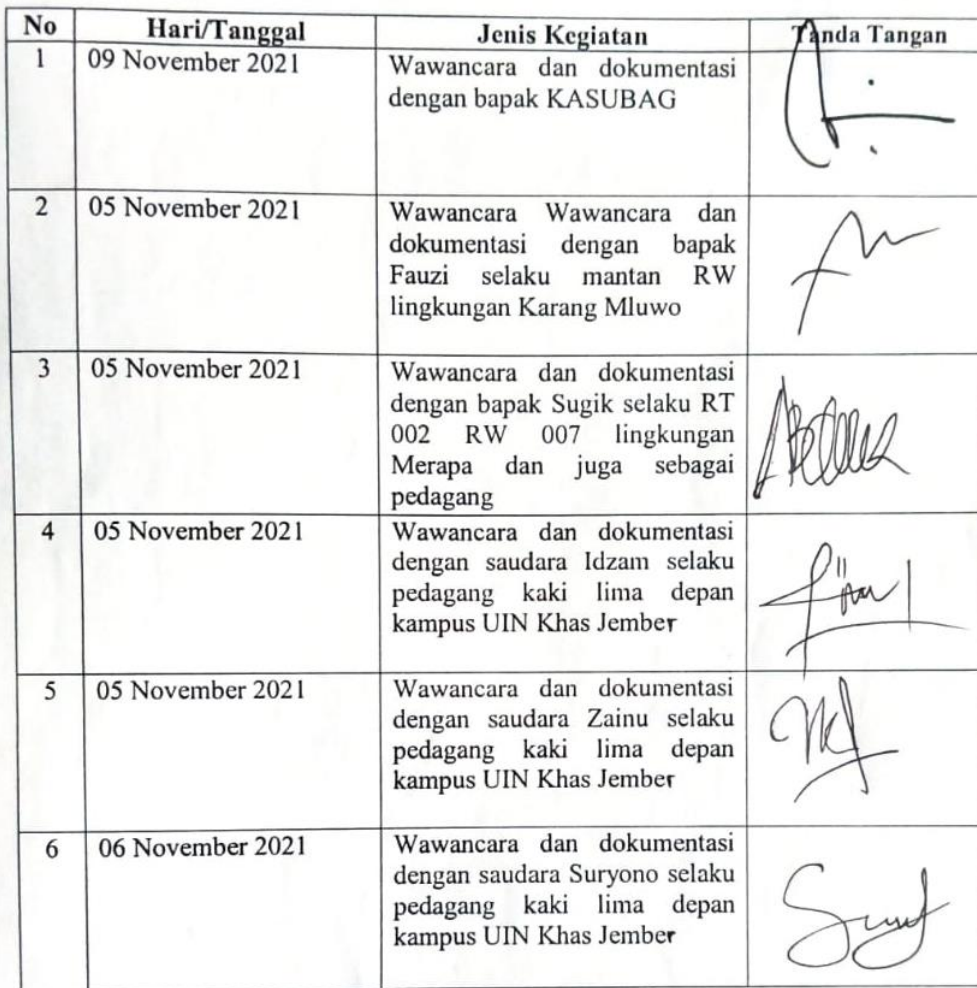 No Hari/Tanggal Jenis Kegiatan Tanda Tangan
1 09 November 2021 Wawancara dan dokumentasi
dengan bapak KASUBAG
2 05 November 2021 Wawancara Wawancara dan
dokumentasi dengan bapak
Fauzi selaku mantan RW
lingkungan Karang Mluwo
3 05 November 2021 Wawancara dan dokumentasi
dengan bapak Sugik selaku RT
002 RW 007 lingkungan
Merapa dan juga sebagai
pedagang
4 05 November 2021 Wawancara dan dokumentasi
dengan saudara Idzam selaku
pedagang kaki lima depan
kampus UIN Khas Jember
5 05 November 2021 Wawancara dan dokumentasi
dengan saudara Zainu selaku
pedagang kaki lima depan
kampus UIN Khas Jember
6 06 November 2021 Wawancara dan dokumentasi
dengan saudara Suryono selaku
pedagang kaki lima depan
kampus UIN Khas Jember